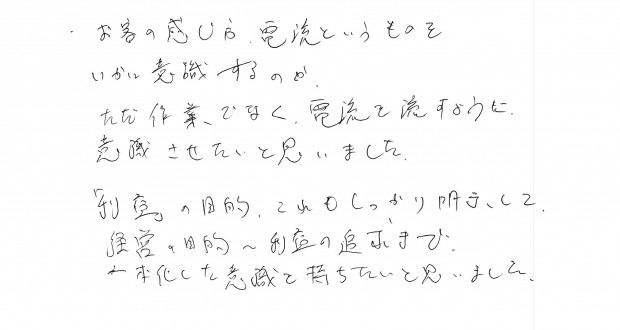 ・お客の感じ方、電流というものを
いかに意識するのか、
ただ作業、でなく、電流を流すように、
意識させたいと思いました。
「利益」の目的、これもしっかり明示して、
経営の目的～利益の追求まで、
一本化した意識を持ちたいと思いました。